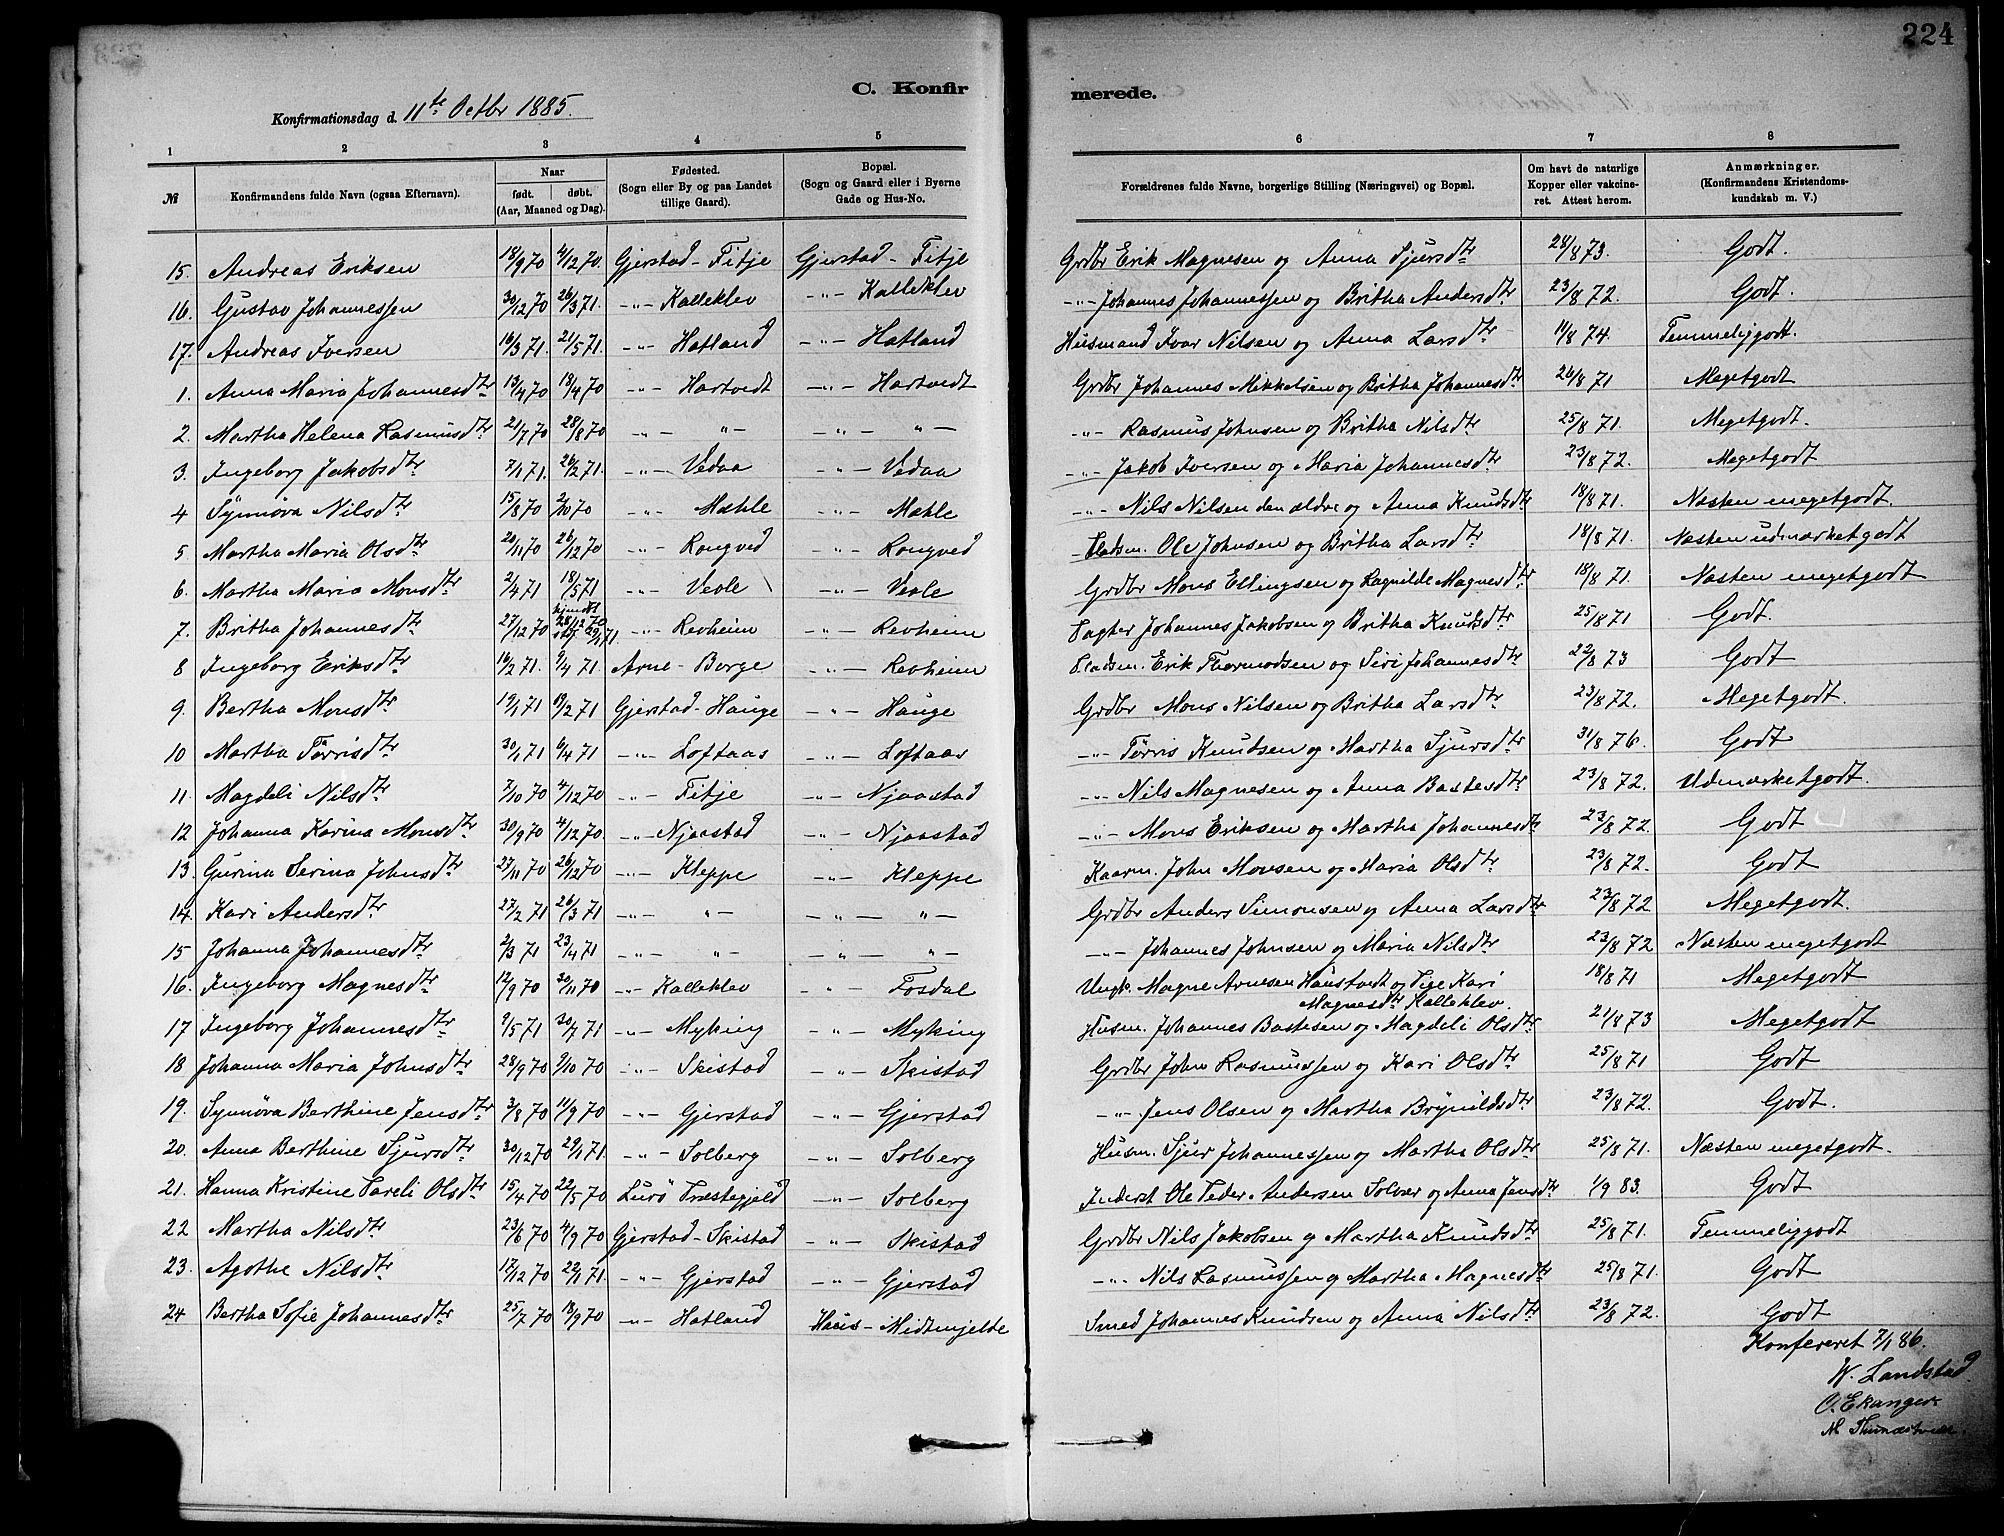 224
C. Konfirmerede.
Konfirmationsdag d. 11te Octbr 1885.
1 2 3 4 5 6 7 8
№ Konfirmandens fulde Navn (ogsaa Efternavn). Naar født. døbt. (Aar, Maaned og Dag). Fødested. (Sogn eller By og paa Landet tillige Gaard). Bopæl. (Sogn og Gaard eller i Byerne Gade og Hus-No. Forældrenes fulde Navne, borgerlige Stilling (Næringsvei) og Bopæl. Om havt de naturlige Kopper eller vakcineret. Attest herom. Anmærkninger. (Konfirmandens Kristendomskundskab m. V.)
15. Andreas Eriksen 18/9 70 4/12 70. Gjerstad - Fitje Gjerstad - Fitje Grdbr Erik Magnesen og Anna Sjursdtr 28/8 73. Godt.
16. Gustav Johannessen 30/12 70 26/3 71. -"- Kalleklev -"- Kalleklev -"- Johannes Johannessen og Britha Andersdtr 23/8 72. Godt.
17. Andreas Iversen 16/3 71. 21/5 71. -"- Hatland -"- Hatland Husmand Ivar Nilsen og Anna Larsdtr 11/8 74. Temmeligodt.
1. Anna Maria Johannesdtr 13/4 70 18/4 70 -"- Hartvedt -"- Hartvedt Grdbr Johannes Mikkelsen og Britha Johannesdtr 26/8 71 Megetgodt
2. Martha Helena Rasmusdtr 21/7 70 28/8 70 -"- "- -"- "- -"- Rasmus Johnsen og Britha Nilsdtr 25/8 71. Megetgodt.
3. Ingeborg Jakobsdtr 7/1 71. 26/2 71. -"- Vedaa -"- Vedaa -"- Jakob Iversen og Maria Johannesdtr 23/8 72. Megetgodt
4 Synnøva Nilsdtr 15/8 70 2/10 70 -"- Mæhle -"- Mæhle -"- Nils Nilsen den ældre og Anna Knudsdtr 18/8 71. Næsten megetgodt.
5 Martha Maria Olsdtr 20/11 70 26/12 70 -"- Rongved -"- Rongved Pladsm. Ole Johnsen og Britha Larsdtr 18/8 71. Næsten udmærketgodt
6. Martha Maria Monsdtr 2/4 71 18/5 71 -"- Vevle -"- Vevle Grdbr Mons Ellingsen og Ragnilde Magnesdtr 18/8 71. Næsten megetgodt
7. Britha Johannesdtr 27/12 70 hjmdbt 28/12 70 stf. 29/1 71 -"- Revheim -"- Revheim Pagter Johannes Jakobsen og Britha Knudsdtr 25/8 71 Godt.
8 Ingeborg Eriksdtr 16/2 71. 9/4 71. Arne - Borge -"- Revheim Pladsm. Erik Thormodsen og Siri Johannesdtr 22/8 73 Godt
9. Bertha Monsdtr 19/1 71 19/2 71 Gjerstad - Hauge -"- Hauge Grdbr Mons Nilsen og Britha Larsdtr 23/8 72. Megetgodt.
10 Martha Tørrisdtr 30/1 71 6/4 71 -"- Loftaas -"- Loftaas -"- Tørris Knudsen og Martha Sjursdtr 31/8 76. Godt
11. Magdeli Nilsdtr 7/10 70 4/12 70 -"- Fitje -"- Njaastad -"- Nils Magnesen og Anna Bastesdtr 23/8 72. Udmærketgodt.
12 Johanna Karina Monsdtr 30/9 70 4/12 70. -"- Njaastad -"- Njaastad -"- Mons Eriksen og Martha Johannesdtr 23/8 72. Godt
13. Gurina Serina Johnsdtr 27/11 70 26/12 70 -"- Kleppe -"- Kleppe Kaarm. John Monsen og Maria Olsdtr 23/8 72. Godt
14. Kari Andersdtr 27/2 71 26/3 71 -"- "- -"- "- Grdbr Anders Simonsen og Anna Larsdtr 23/8 72 Megetgodt.
15 Johanna Johannesdtr 2/3 71 23/4 71 -"- "- -"- "- -"- Johannes Johnsen og Maria Nilsdtr 23/8 72 Næsten megetgodt
16. Ingeborg Magnesdtr 12/9 70 30/11 70 -"- Kalleklev -"- Fosdal Ungk. Magne Arnesen Haustvedt og Pige Kari Magnesdtr Kalleklev. 18/8 71 Megetgodt
17 Ingeborg Johannesdtr 9/5 71 30/7 71 -"- Myking -"- Myking Husm. Johannes Bastesen og Magdeli Olsdtr 21/8 73 Megetgodt
18 Johanna Maria Johnsdtr 28/9 70 9/10 70 -"- Skistad -"- Skistad Grdbr John Rasmussen og Kari Olsdtr 25/8 71 Godt
19. Synnøva Berthine Jensdtr 3/8 70 11/9 70 -"- Gjerstad -"- Gjerstad -"- Jens Olsen og Martha Brynildsdtr 23/8 72. Godt.
20. Anna Berthine Sjursdtr 30/12 70 29/1 71. -"- Solberg -"- Solberg Husm. Sjur Johannessen og Martha Olsdtr 25/8 71. Næsten megetgodt.
21. Hanna Kristine Sareli Olsdtr 15/4 70 22/5 70 Lurö Præstegjeld -"- Solberg Inderst Ole Peder Andersen Solvær og Anna Jensdtr 1/9 83. Godt
22 Martha Nilsdtr 23/6 70 4/9 70 Gjerstad - Skistad -"- Skistad Grdbr Nils Jakobsen og Martha Knudsdtr 25/8 71. Temmeliggodt
23. Agathe Nilsdtr 12/12 70 22/1 71. -"- Gjerstad -"- Gjerstad -"- Nils Rasmussen og Martha Magnesdtr 25/8 71. Godt
24 Bertha Sofie Johannesdtr 25/7 70 18/9 70 -"- Hatland Haus - Midtmjelde Smed Johannes Knudsen og Anna Nilsdtr 23/8 72. Godt
Konfereret 7/1 86.
W. Landstad
O. Ekanger